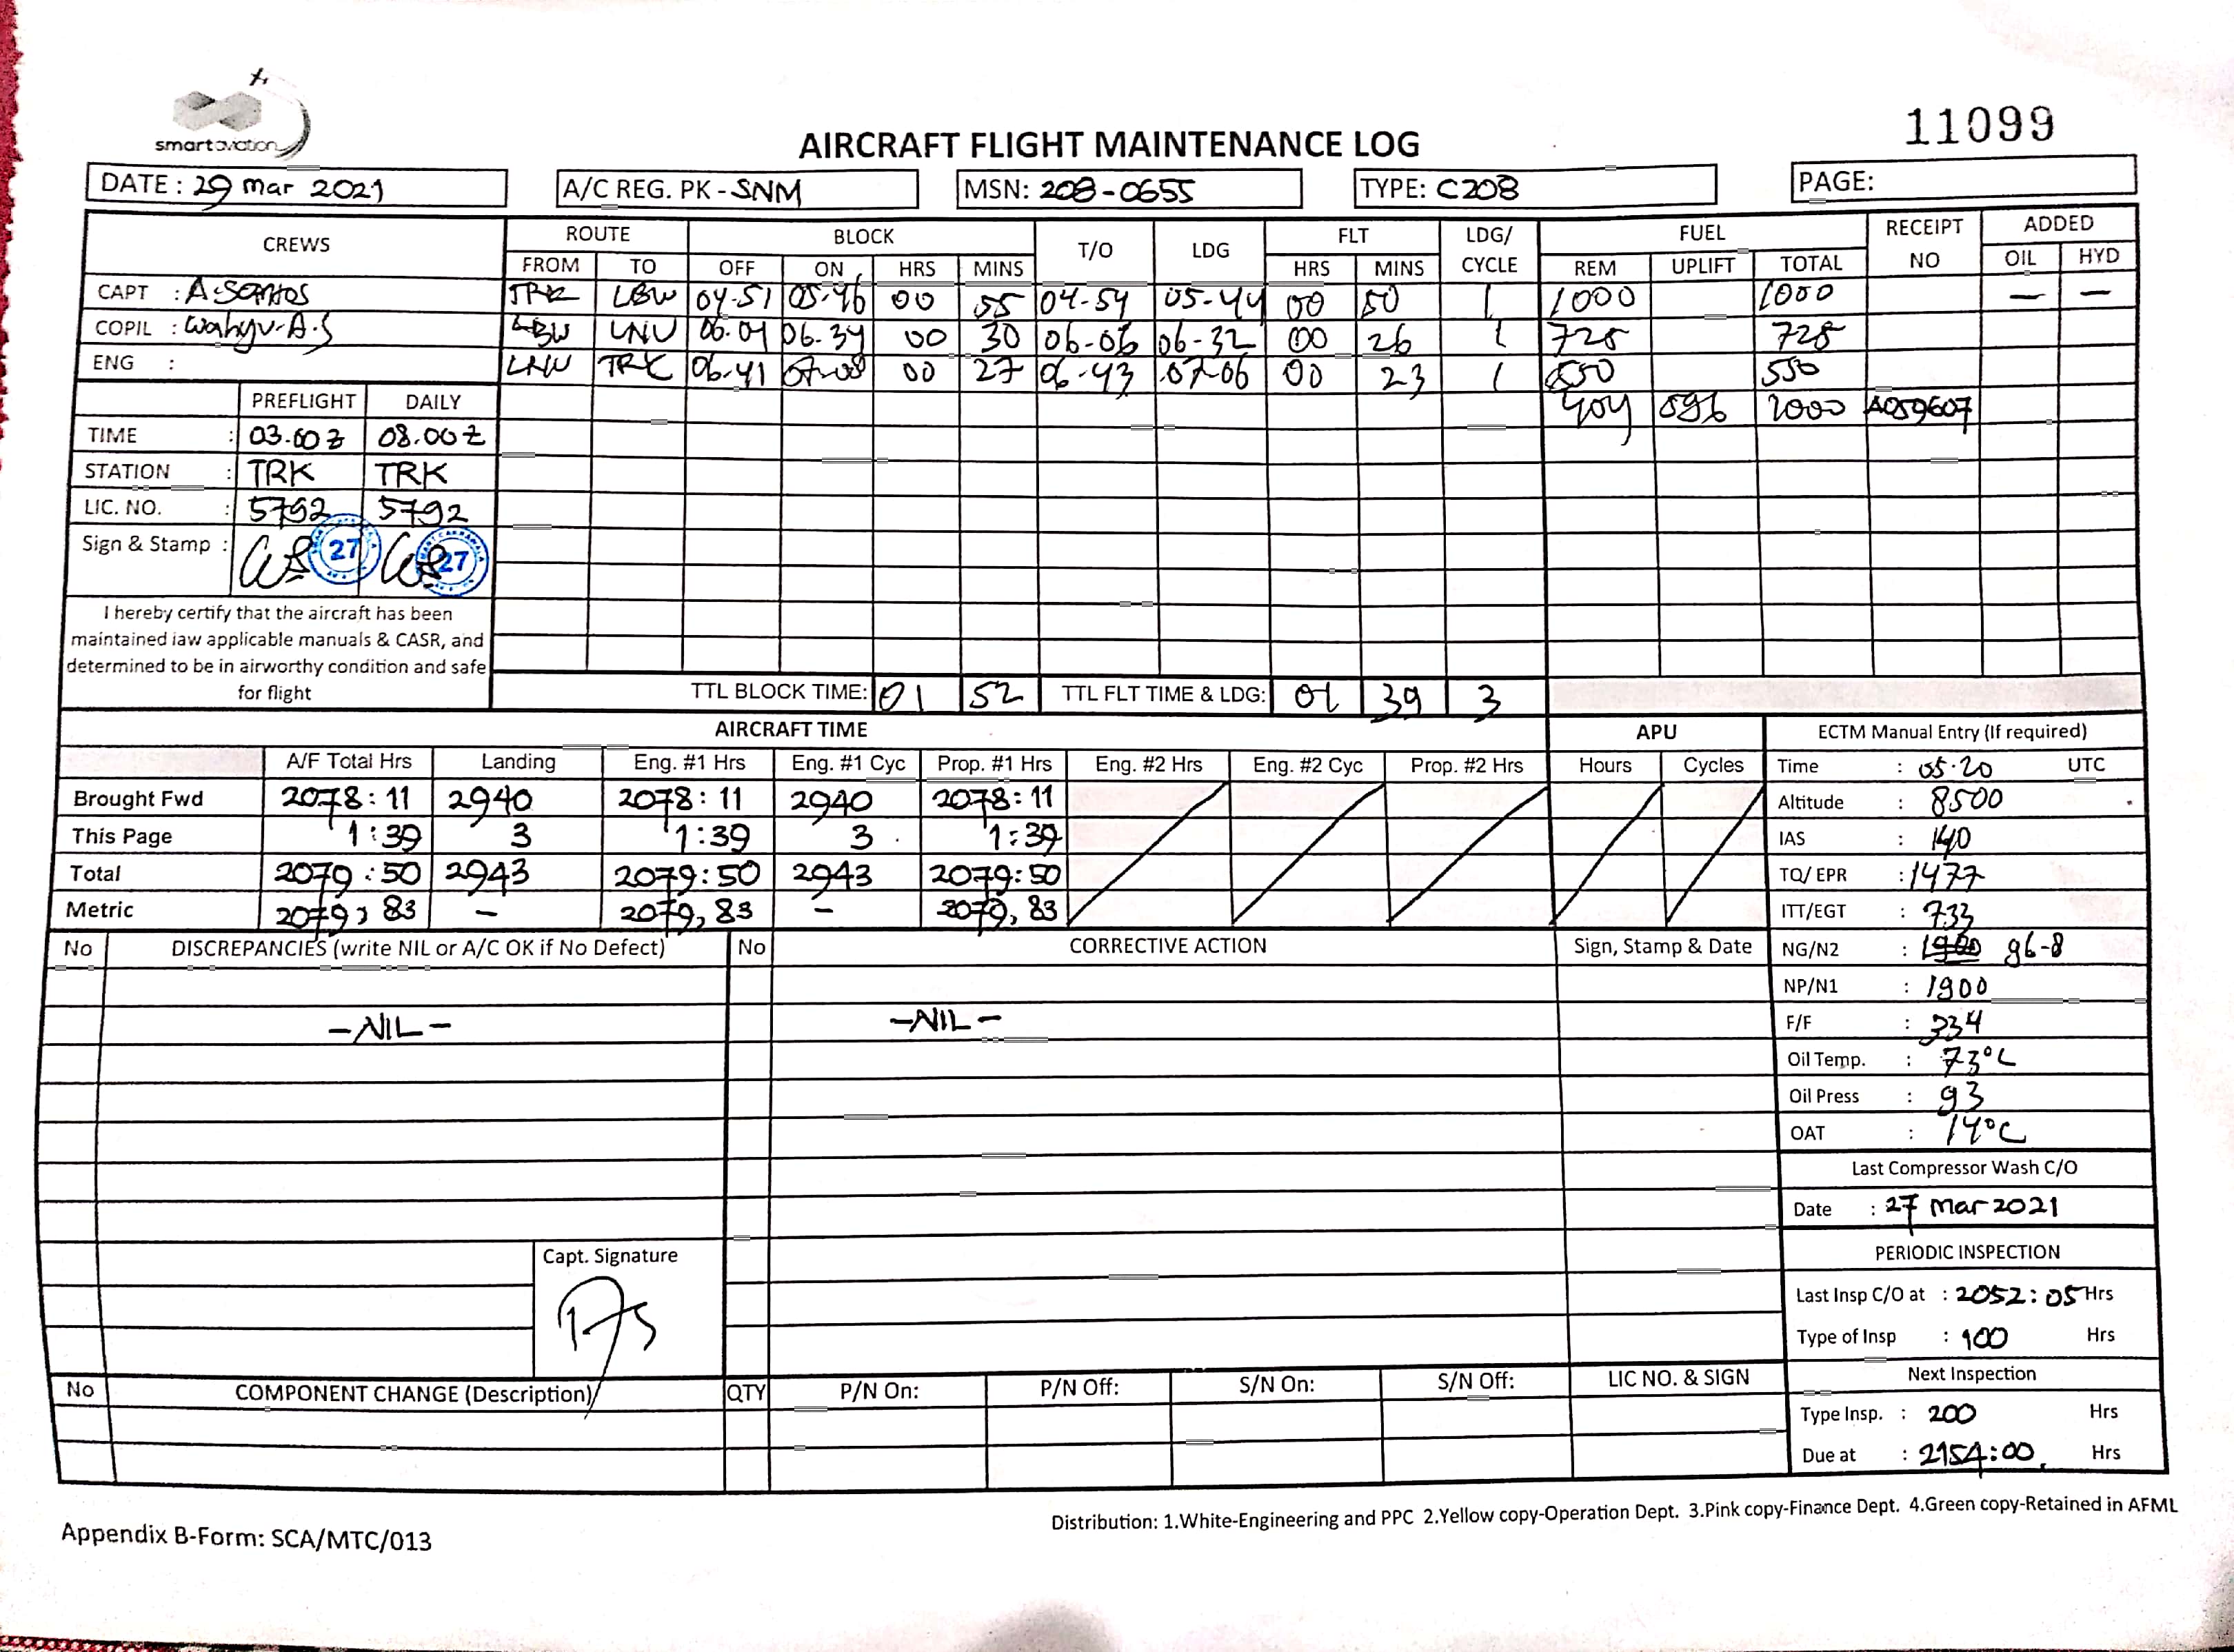 smart aviation
11099
AIRCRAFT FLIGHT MAINTENANCE LOG
DATE : 29 mar 2021 A/C REG. PK - SNM MSN: 208-0655 TYPE: C208 PAGE:
CREWS ROUTE BLOCK T/O LDG FLT LDG/ CYCLE FUEL RECEIPT NO ADDED
FROM TO OFF ON HRS MINS HRS MINS REM UPLIFT TOTAL OIL HYD
CAPT : A. Santos TRK LBW 04-51 05-46 00 55 04-54 05-44 00 50 1 1000 1000 — —
COPIL : Wahyu. A.S LBW LNU 06.04 06.34 00 30 06-06 06-32 00 26 1 728 728
ENG : LNU TRK 06-41 07-08 00 27 06-43 07-06 00 23 1 550 550
404 596 1000 A059607
PREFLIGHT DAILY
TIME : 03.00 Z 08.00 Z
STATION : TRK TRK
LIC. NO. : 5792 5792
Sign & Stamp : 27 27
I hereby certify that the aircraft has been
maintained iaw applicable manuals & CASR, and
determined to be in airworthy condition and safe
for flight
TTL BLOCK TIME: 01 52 TTL FLT TIME & LDG: 01 39 3
AIRCRAFT TIME APU ECTM Manual Entry (If required)
A/F Total Hrs Landing Eng. #1 Hrs Eng. #1 Cyc Prop. #1 Hrs Eng. #2 Hrs Eng. #2 Cyc Prop. #2 Hrs Hours Cycles Time : 05.20 UTC
Brought Fwd 2078:11 2940 2078:11 2940 2078:11 Altitude : 8500
This Page 1:39 3 1:39 3 1:39 IAS : 140
Total 2079:50 2943 2079:50 2943 2079:50 TQ/ EPR : 1477
Metric 2079, 83 – 2079, 83 – 2079, 83 ITT/EGT : 733
No DISCREPANCIES (write NIL or A/C OK if No Defect) No CORRECTIVE ACTION Sign, Stamp & Date NG/N2 : 96-8
NP/N1 : 1900
- NIL - - NIL - F/F : 334
Oil Temp. : 73°C
Oil Press : 93
OAT : 14°C
Last Compressor Wash C/O
Date : 27 Mar 2021
Capt. Signature PERIODIC INSPECTION
Last Insp C/O at : 2052:05 Hrs
Type of Insp : 100 Hrs
No COMPONENT CHANGE (Description) QTY P/N On: P/N Off: S/N On: S/N Off: LIC NO. & SIGN Next Inspection
Type Insp. : 200 Hrs
Due at : 2154:00 Hrs
Distribution: 1.White-Engineering and PPC 2.Yellow copy-Operation Dept. 3.Pink copy-Finance Dept. 4.Green copy-Retained in AFML
Appendix B-Form: SCA/MTC/013